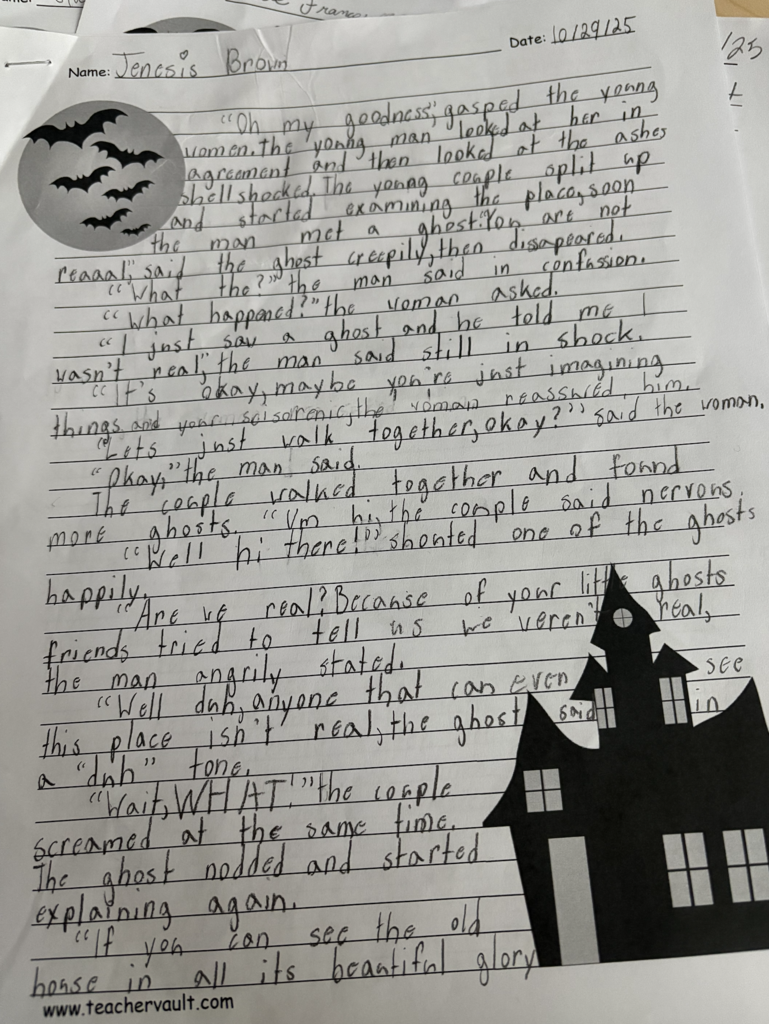 Franc
Date: 10/29/25
/25
Name: Jenesis Brown
"Oh my goodness", gasped the young
women. The young man looked at her in
agreement and then looked at the ashes
shell shocked. The young couple split up
and started examining the place, soon
the man met a ghost. "You are not
reaaal," said the ghost creepily, then disapeared.
"What the?" the man said in confassion.
"What happened?" the woman asked.
"I just saw a ghost and he told me I
wasn't real," the man said still in shock.
"It's okay, maybe you're just imagining
things and your the woman reassured him.
"Lets just walk together, okay?" said the woman.
"Okay," the man said.
The couple walked together and found
more ghosts. "Um hi, the couple said nervous.
"Well hi there!" shouted one of the ghosts
happily.
"Are we real? Because of your little ghosts
friends tried to tell us we weren't real,
the man angrily stated.
"Well duh, anyone that can even see
this place isn't real, the ghost said in
a "duh" tone.
"Wait, WHAT!" the couple
screamed at the same time.
The ghost nodded and started
explaining again.
"If you can see the old
house in all its beautiful glory
www.teachervault.com